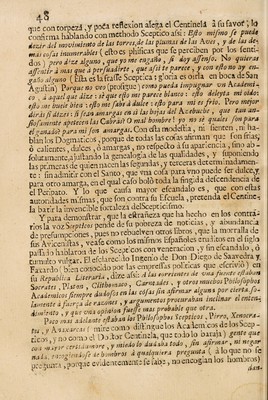 48
que con torpeza, y poca reflexion alega el Centinela à su favor; lo
confirma hablando con methodo Sceptico assi: Esto mismo se puede
dezir del movimiento de las torres, de las plumas de las Aves, y de las de-
mas cosas innumerables (esto es phisicas que se perciben por los senti-
dos) pero dize alguno, que yo me engaño, si doy assenso. No quieras
assentir à mas que à persuadirte, que assi te parece, y con esso no ay en-
gaño alguno (Esta es la frasse Sceptica: gloria es oirla en boca de San
Agustin) Porque no veo (prosigue) como pueda impugnar un Academi-
co, à aquel que dize: sè que esto me parece blanco: esto deleyta mi oìdo:
esto me huele bien: esto me sabe à dulce: esto para mi es frio. Pero mejor
diràs si dizes: si son amargas en si las hojas del Acebuche, que tan an-
siosamente apetecen las Cabras? O mal hombre! yo no sè quales son para
el ganado para mi son amargas. Con esta modestia, ni sienten, ni ha-
blan los Dogmaticos, porque de todas las cosas afirman que son frias,
ò calientes, dulces, ò amargas, no respecto à su apariencia, sino ab-
solutamente, ajustando la genealogia de las qualidades, y suponiendo
las primeras de quien nacen las segundas, y terceras determinadamen-
te: sin admitir con el Santo, que una cosa para uno puede ser dulce, y
para otro amarga, en el qual caso bolò toda la fingida dependencia de
el Peripato. Y lo que causa mayor escandalo es, que con estas
autoridades mismas, que son contra su Escuela, pretenda el Centine-
la batir la invencible fortaleza del Scepticismo.
Y para demostrar, que la estrañeza que ha hecho en los contra-
rios la voz Sceptico pende de su pobreza de noticias, y abundancia
de presumpciones, pues no rebuelven otros libros, que la morralla de
sus Avicenistas, vease como los mismos Españoles eruditos en el siglo
passado hablaron de los Scepticos con veneracion, y sin escandalo, ò
tumulto vulgar. El esclarecido Ingenio de Don Diego de Saavedra y
Faxardo (bien conocido por las empressas politicas que escriviò) en
su Republica Literaria, dize assi: à las corrientes de una fuente estaban
Socrates, Platon, Clithomaco, Carneades, y otros muchos Philosophos
Academicos siempre dudosos en las cosas sin afirmar alguna por cierta so-
lamente à fuerza de razones, y argumentos procuraban inclinar el enten-
dimiento, y que una opinion fuesse mas probable que otra.
Poco mas adelante estaban los Philosophos Scepticos, Pirro, Xenocra-
tes, y Anaxarcas (mire como distingue los Academicos de los Scep-
ticos, y no como el Doctor Centinela, que todo lo baraja) gente que
con mayor rendimiento, y miedo lo dudaba todo, sin afirmar, ni negar
nada, encogiendose de hombros à qualquiera pregunta (à lo que no se
pregunta, porque evidentemente se sabe, no encogian los hombros)
dan-